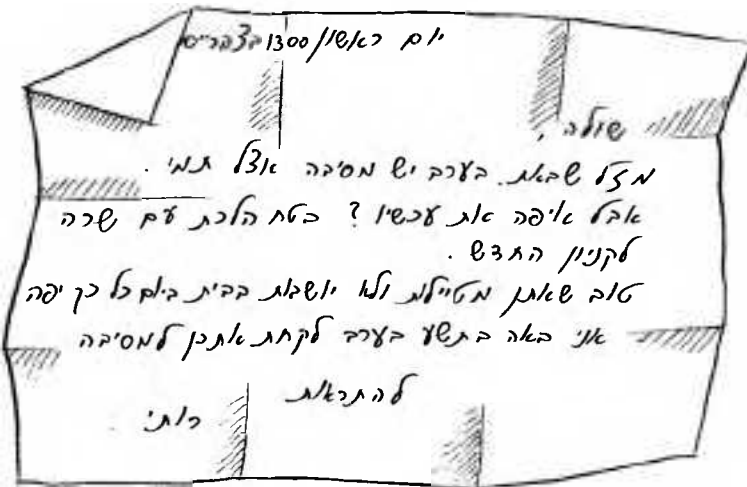 יום ראשון 1300 בצהריים
שולה ,
מזל שבאת. בערב יש מסיבה אצל תמי .
אבל איפה את עכשיו ? בטח הלכת עם שרה
לקניון החדש .
טוב שאתן מטיילות ולא יושבות בבית ביום כל כך יפה
אני באה בתשע בערב לקחת אתכן למסיבה
להתראות
רותי